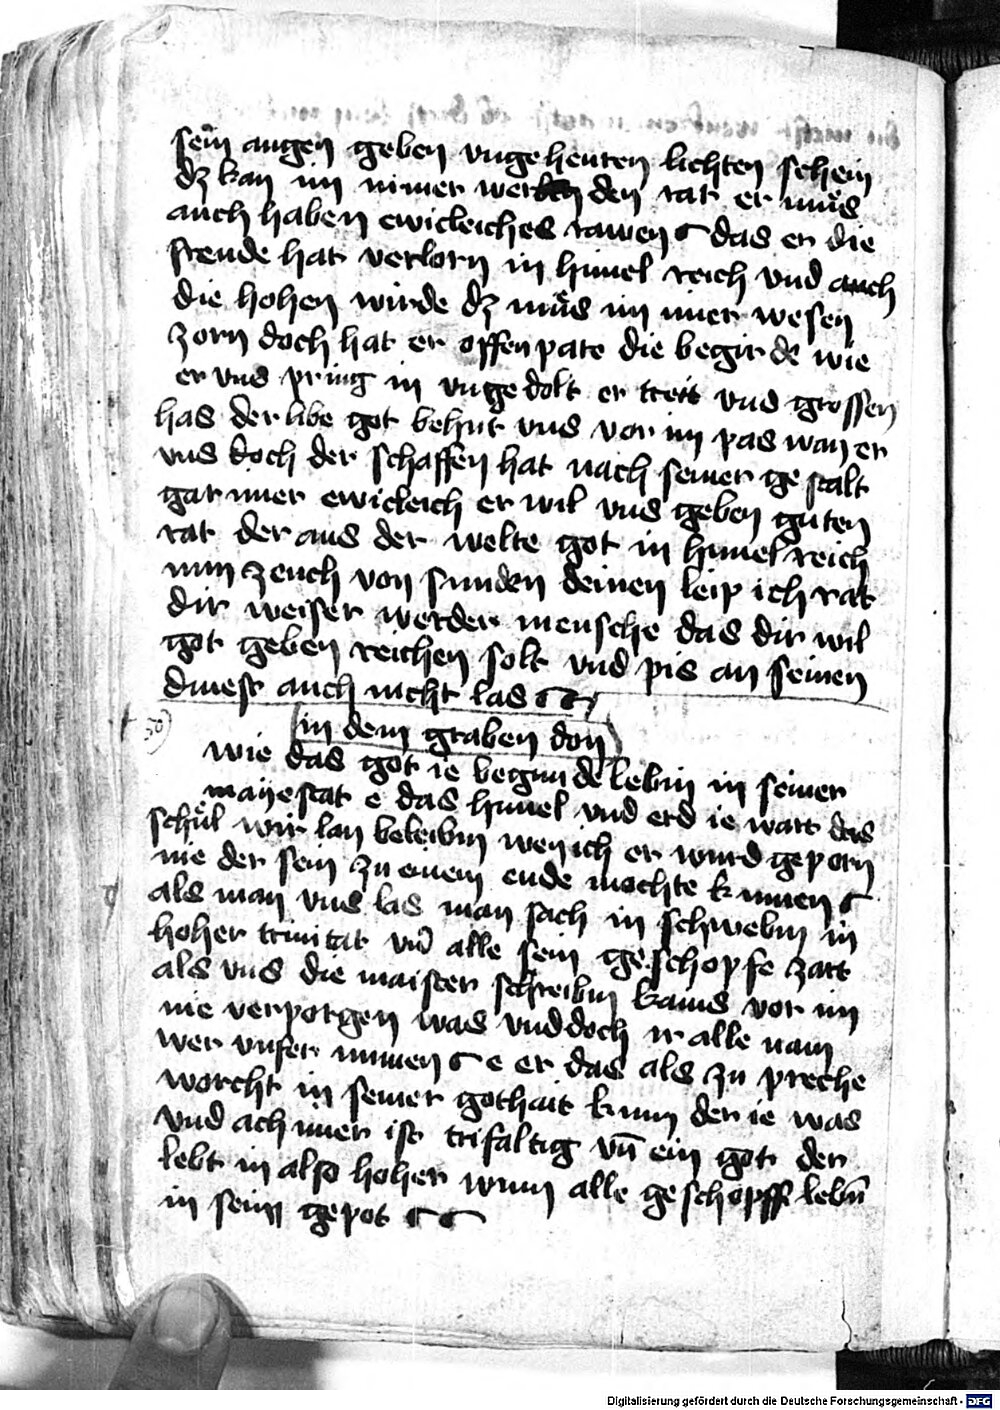 sein augen geben ungeheuren lichten schein
dz kan im nimer werden rat er mus
auch haben ewicleiches rawen das er die
freude hat verlorn in himel reich vnd auch
die hohen wirde dz mus im imer wesen
zorn doch hat er offenpare die begirde wie
er vns pring in ungedolt er treit vns grossen
has der libe got behut vns vor im pas wan er
vns doch der schaffen hat nach seiner gestalt
gar imer ewicleich er wil vns geben guten
rat der aus der welte got in himel reich
nun zeuch von sunden deinen leip ich rat
dir weiser werder mensche das dir wil
got geben reichen solt vnd pis an seinen
dinest auch nicht las
in dem graben don
wie das got ie begunde lebin in seiner
mayestat e das himel vnd erd ie wart das
schul wir lan beleibin wen ich er wurd geporn
nie der sein zu einem ende mochte kumen
als man vns las man sach in schwebin in
hoher trinitat vn̄ alle sein geschopfe zart
als vns die maister schreibin kains vor im
nie verporgen was vnd doch ir alle nam
wer vnser mumen e er das als zu preche
worcht in seiner gothait kum der ie was
vnd ach imer ist trifaltig vn̄ ein got der
lebt in also hoher wun alle geschopff lebn̄
in seim gepot
Digitalisierung gefördert durch die Deutsche Forschungsgemeinschaft - DFG